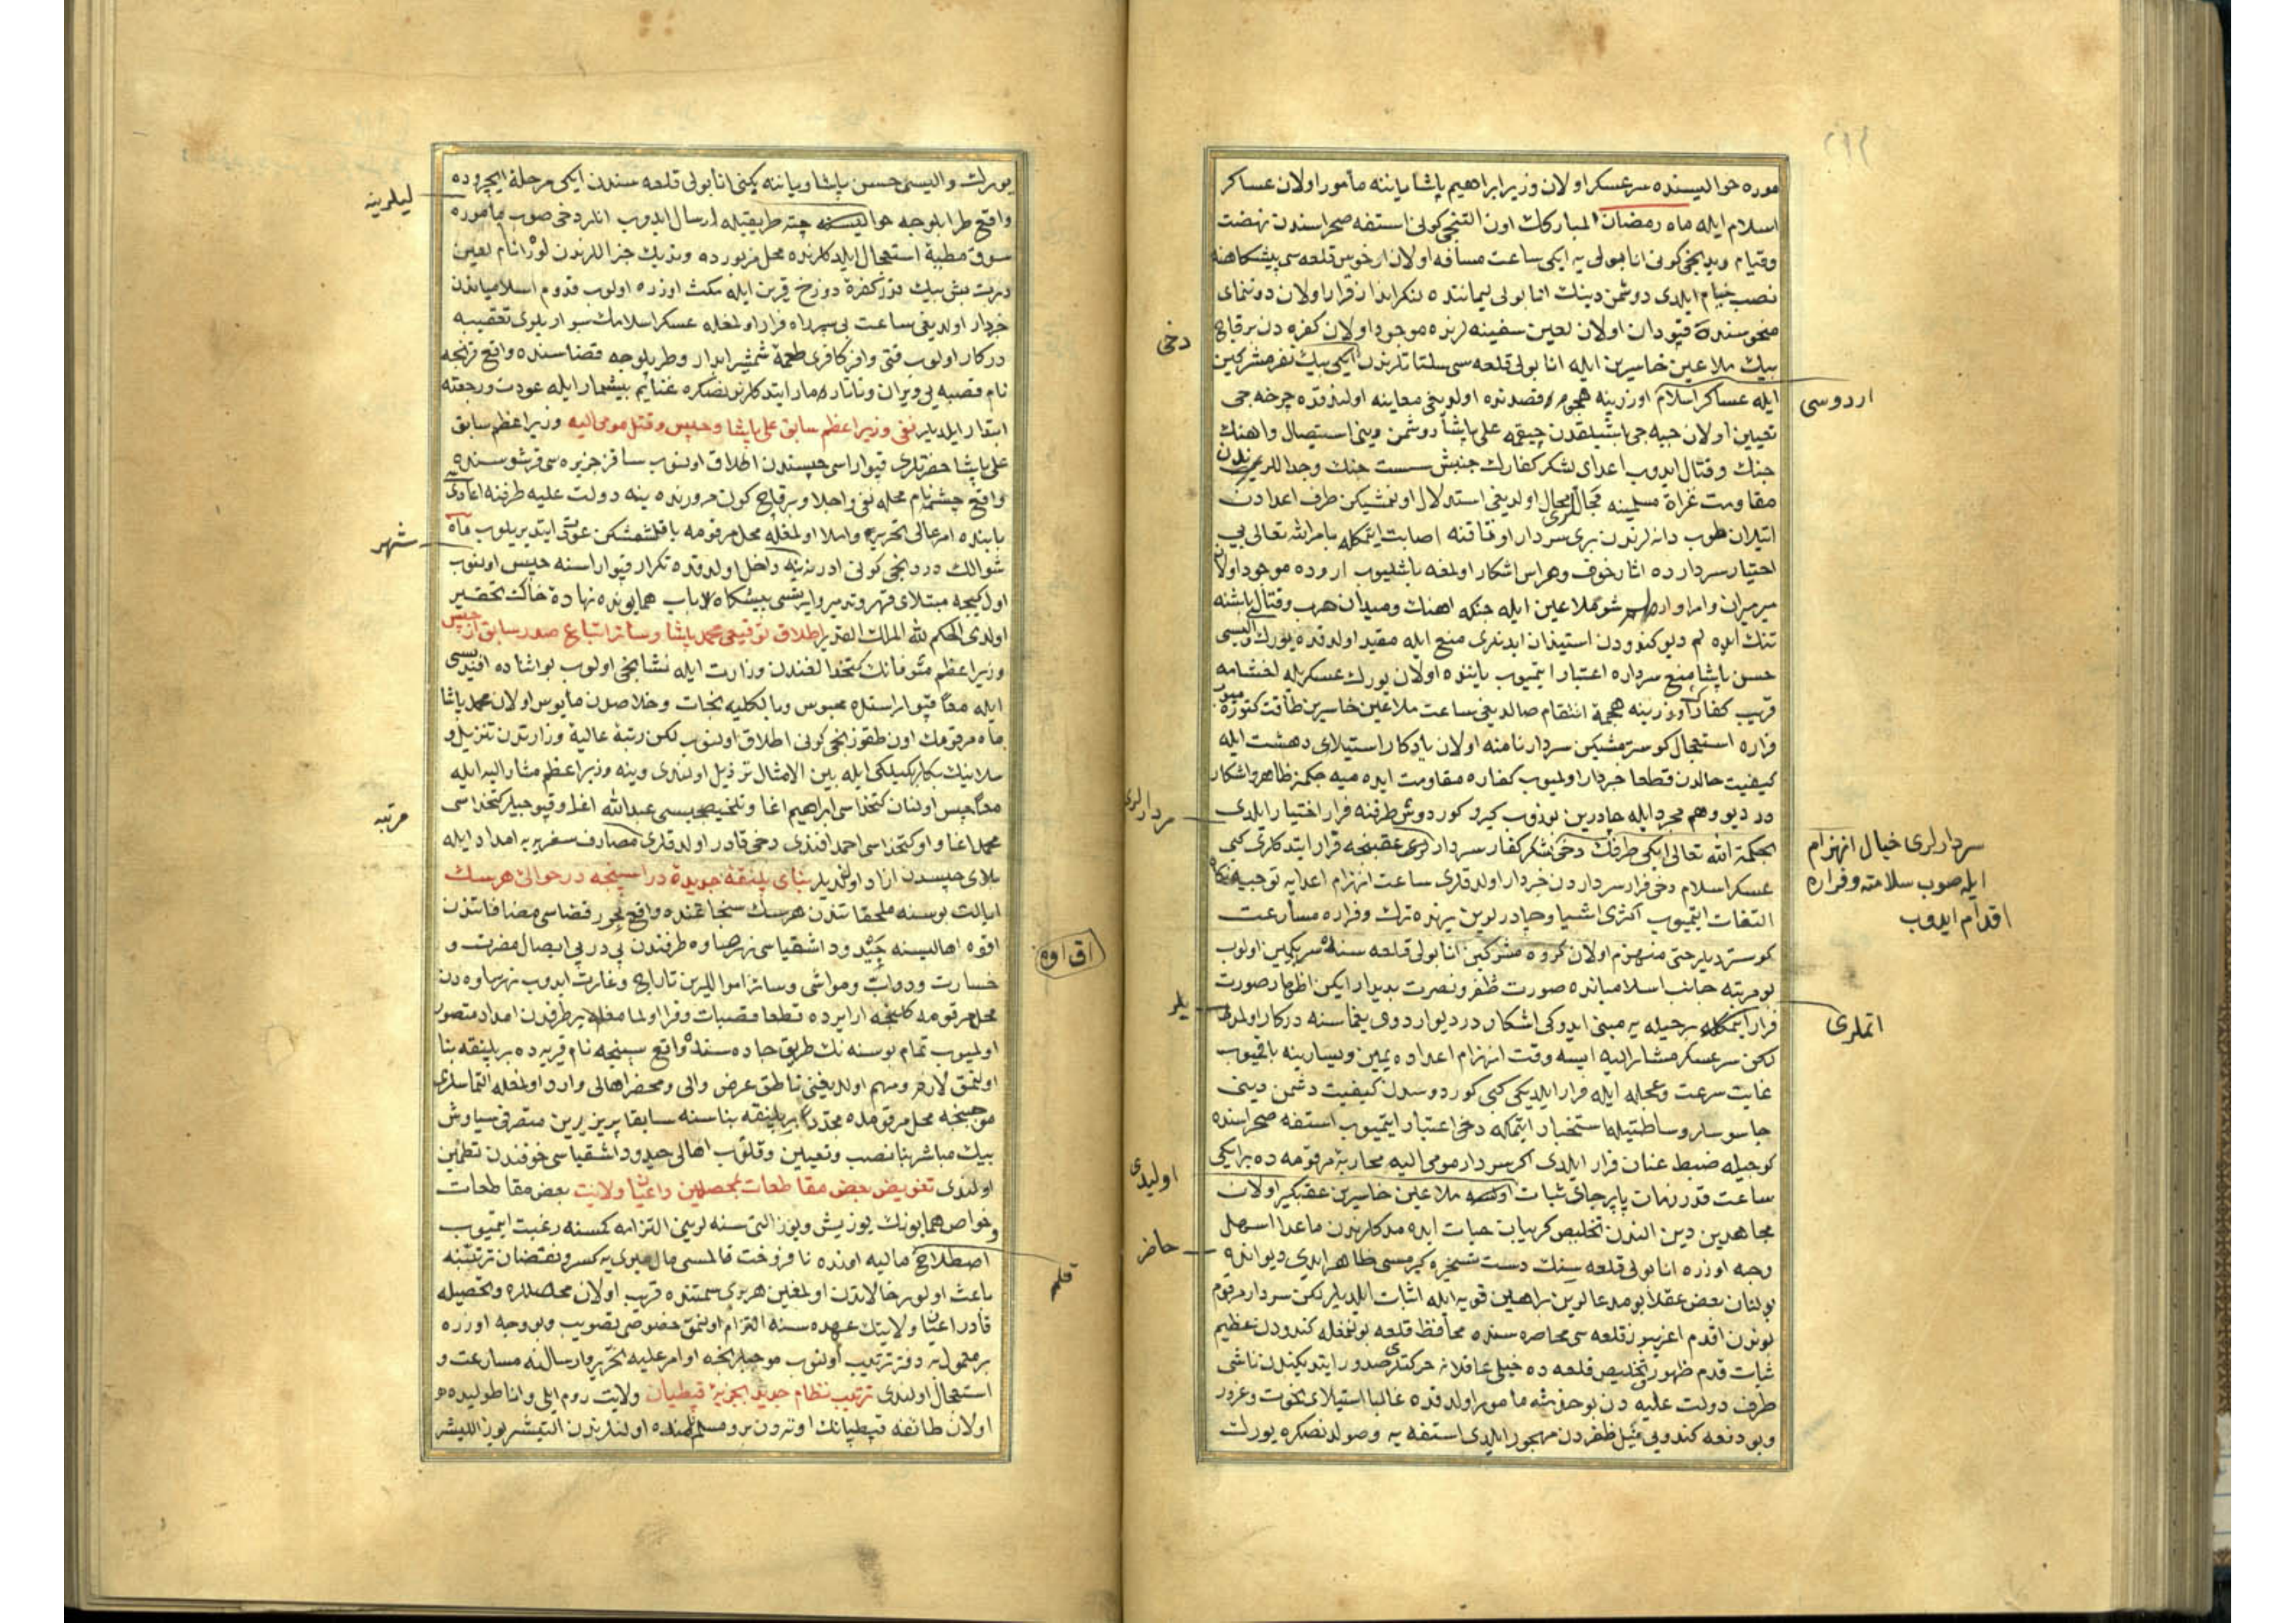 موره حوالیسنده سرعسکر اولان وزیر ابراهیم پاشا یاننه مأمور اولان عساکر
اسلام ایله ماه رمضان المبارکك اون التنجی کونی استفه صحراسندن نهضت
وقیام ویدنجی کونی انابولی یه ایکی ساعت مسافه اولان ارخوس قلعه سی پیشکاهنه
نصب خیام ایلدی دوشمن دینك انابولی لیماننده لنکرانداز قرار اولان دوننمای
منحوسنده قپودان اولان لعین سفینه لرنده موجود اولان کفره دن برقاج
بیك ملاعین خاسرین ایله انابولی قلعه سی سلتاتلرندن ایکی بیك نفر مشرکین
ایله عساکر اسلام اوزرینه هجوم قصدنده اولدیغی معاینه اولندقده چرخه جی
تعیین اولان جبه جی باشیلقدن چیقمه علی پاشا دوشمن دینی استیصال واهنك
جنك وقتال ایدوب اعدای لشکر کفارك جنبش سست جنك وجداللریندن
مقاومت غزاة مسلمینه مجاللری اولدیغی استدلال اولنمشیکن طرف اعدادن
اتیلان طوب دانه لرندن بری سردار اوتاقنه اصابت ایتمکله بامر الله تعالی بی
اختیار سردارده اثار خوف وهراس اشکار اولمغه باشلیوب اروده موجود اولان
میرمیران وامرا وارد شو ملاعین ایله جنکه اهنك ومیدان حرب وقتالی باشنه
تنك ایده لم دیو کندودن استیذان ایدنلری منع ایله مقید اولدقده یورك والیسی
حسن پاشا منع سرداره اعتبار ایتمیوب یاننده اولان یورك عسکریله اخشامه
قریب کفار اوزرینه هجمهٔ انتقام صالدیغی ساعت ملاعین خاسرین طاقت کتوره میوب
فراره استعجال کوسترمشیکن سردار نامنه اولان یادکار استیلای دهشت ایله
کیفیت حالدن قطعا خبردار اولمیوب کفاره مقاومت ایده میه جکمز ظاهر واشکار
در دیو وهم مجرد ایله چادرین بوزوب کیرو کوردوس طرفنه فرار اختیار ایلدی
بحکمة الله تعالی ایکی طرفك دخی لشکر کفار سردارلری عقبنجه فرار ایتدکلری کبی
عسکر اسلام دخی فرار سرداردن خبردار اولدقلری ساعت انهزام اعدایه توجیه نکاه
التفات ایتمیوب اکثری اشیا وچادرلرین یرنده ترك وفراره مسارعت
کوستردیلر حتی منهزم اولان کروه مشرکین انابولی قلعه سنه سربکمین اولوب
بومرتبه جانب اسلامیانده صورت ظفر ونصرت بدیدار ایکن اظهار صورت
فرار ایتمکله برحیله یه مبنی ایدوکی اشکار در دیو اردوی یغماسنه درکار اولمدی
لکن سرعسکر مشار الیه ایسه وقت انهزام اعداده یمین ویسارینه باقمیوب
غایت سرعت وعجله ایله فرار ایلدیکی کبی کوردوسدن کیفیت دشمن دینی
جاسوسلر وساطتیله استخبار ایتمکله دخی اعتبار ایتمیوب استفه صحراسنده
کوجیله ضبط عنان قرار ایلدی اکر سردار مومی الیه محاربهٔ مرقومه ده بر ایکی
ساعت قدر نهات پابرجای ثبات اولسه ملاعین خاسرین عقبکیر اولان
مجاهدین دین الندن تخلیص کریبان حیات ایده مدکلرندن ماعدا اسهل
وجه اوزره انابولی قلعه سینك دست تسخیره کیرمسی ظاهر ایدی دیو اندہ
بولنان بعض عقلا بو مدعالرین براهین قویه ایله اثبات ایلدیلر لکن سردار مرقوم
بوندن اقدم اغریبوز قلعه سی محاصره سنده محافظ قلعه بولنمغله کندودن عظیم
ثبات قدم ظهور وتخلیص قلعه ده خیلی عاقلانه حرکتلری صدور ایتدیکندن ناشی
طرف دولت علیه دن بو خدمته مأمور اولدقده غالبا استیلای نخوت وغرور
وبو دفعه کندویی نیل ظفردن مهجور ایلدی استفه یه وصولدنصکره یورك
دخی
اردوسی
سردارلری
سردارلری خیال انهزام
ایله صوب سلامته وفراره
اقدام ایدوب
یلر
اتملری
اولیدی
حاضر
یورك والیسی حسن پاشا ویاننه یکنی انابولی قلعه سندن ایکی مرحله ایچروده
واقع طرابلوجه حوالیسنه چته طریقیله ارسال ایدوب انلر دخی صوب مأموره
سوق مطیهٔ استعجال ایلدکلرنده محل مزبورده وندیك جنراللرندن لورانام لعین
درت بش بیك قدر کفرهٔ دوزخ قرین ایله مکث اوزره اولوب قدوم اسلامیاندن
خبردار اولدیغی ساعت بی سرراه فرار اولمغله عسکر اسلامك سواریلری تعقیبه
درکار اولوب قتی وافر کافری طعمهٔ شمشیر ابدار وطربلوجه قضاسنده واقع قرنجه
نام قصبه یی ویران وتاتار مار ایتدکلرندنصکره غنایم بیشمار ایله عودت ورجعته
ابتدار ایلدیلر نفی وزیر اعظم سابق علی پاشا وحبس وقتل مومی الیه وزیر اعظم سابق
علی پاشا حضرتلری قپوارا سی حبسندن اطلاق اولنوب ساقز جزیره سی قرشوسنده
واقع چشمه نام محله نفی واجلا وبرقاچ کون مرورنده ینه دولت علیه طرفنه اعاده سی
بابنده امر عالی تحریر واملا اولمغله محل مرقومه یاقلشمشکن عودت ایتدیریلوب ماه
شوالك دردنجی کونی ادرنه یه داخل اولدقده تکرار قپوارا سنه حبس اولنوب
اول کیجه مبتلای قهر وتدمیر وایرتسی پیشکاه باب همایونده نهادهٔ خاك تحقیر
اولدی الحکم لله الملك القدیر اطلاق توقیعی محمد پاشا وسائر اتباع صدر سابق از حبس
وزیر اعظم متوفانك کتخدالغندن وزارت ایله نشانجی اولوب بو اثناده افندیسی
ایله معا قپوارا سنده محبوس وبالکلیه نجات وخلاصدن مأیوس اولان محمد پاشا
ماه مرقومك اون طقوزنجی کونی اطلاق اولنوب لکن رتبهٔ عالیهٔ وزارتدن تنزیل و
سلانیك بکلربکیلکی ایله بین الامثال ترذیل اولندی وینه وزیر اعظم مشار الیه ایله
معا حبس اولنان کتخداسی ابراهیم اغا وتلخیصجیسی عبدالله اغا وقپوجیلر کتخداسی
محمد اغا واو کتخداسی احمد افندی دخی قادر اولدقلری مصارف سفریه یه امداد ایله
بلای حبسدن ازاد اولندیلر بنای پلنقهٔ جدیده در سپنجه در حوالی هرسك
ایالت بوسنه ملحقاتندن هرسك سنجاغنده واقع نوه قضاسی مضافاتندن
اقوه اهالیسنه حیدود اشقیاسی نهرساوه طرفندن پی درپی ایصال مضرت و
خسارت ودواب ومواشی وسائر اموالرین تاراج وغارت ایدوب نهرساوه دن
محل مرقومه کلنجه ارالرده قطعا قصبات وقرا اولمامغله بر طرفدن امداد متصور
اولمیوب تمام بوسنه نك طریق جاده سنده واقع سپنجه نام قریه ده بر پلنقه بنا
اولنمق لازم ومهم اولدیغنی ناطق عرض والی ومحضر اهالی وارد اولمغله التماسلری
موجبنجه محل مرقومده مجددا بر پلنقه بناسنه سابقا پریزرین متصرفی سیاوش
بیك مباشر بنا نصب وتعیین وقلوب اهالی حیدود اشقیاسی خوفندن تطمین
اولندی تفویض بعض مقاطعات بمحصلین واعیان ولایت بعض مقاطعات
وخواص همایونك یوز بش ویوز التی سنه لرینی التزامه کمسنه رغبت ایتمیوب
اصطلاح مالیه اوزره نافروخت قالمسی مال میری یه کسر ونقصان ترتبنه
باعث اولور حالاتدن اولمغین هر بری سمتنده قریب اولان محصللره وتحصیله
قادر اعیان ولایتك عهده سنه التزام اولنمق خصوصی تصویب وبو وجه اوزره
بر معمول به دفتر ترتیب اولنوب موجبلرنجه اوامر علیه تحریر وارسالنه مسارعت و
استعجال اولندی ترتیب نظام جدید بجزیهٔ قبطیان ولایت روم ایلی واناطولیده
اولان طائفه قبطیانك اوته دن برو مسلم اولنلرندن التیمشر یوز اللیشر
لیلرینه
شهر
مرتبه
اق اوه
قلم